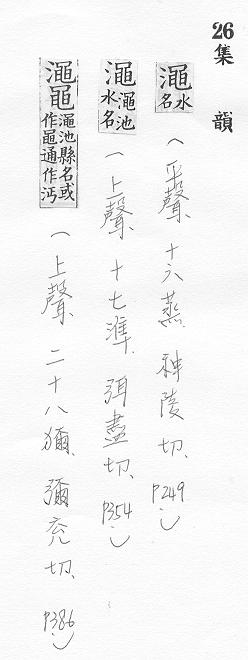 26 集 韻
澠水名(平聲、十六蒸、神陵切、P249)
澠澠池水名(上聲、十七準、弭盡切、P354)
澠黽澠池縣名或作黽通作沔(上聲、二十八獮、彌兗切、P386)